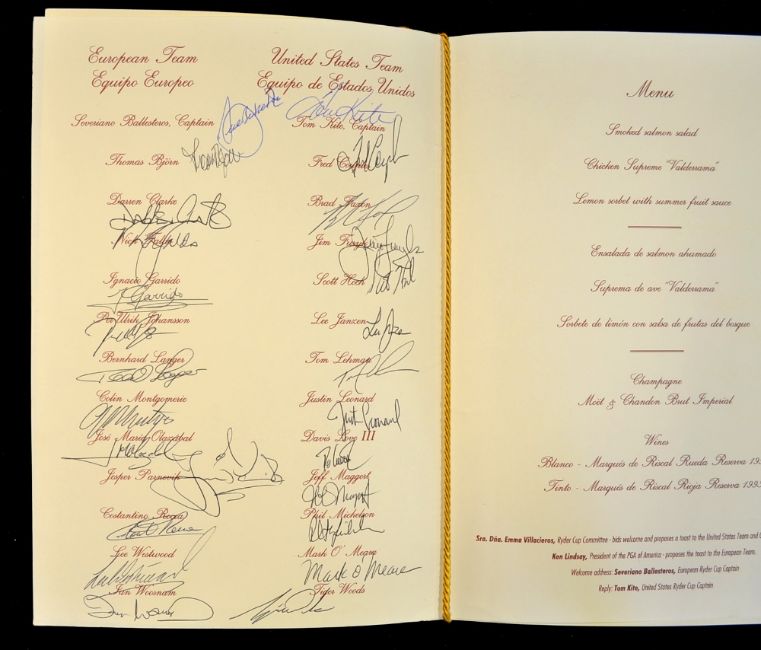 European Team
Equipo Europeo
Severiano Ballesteros, Captain
Thomas Björn
Darren Clarke
Nick Faldo
Ignacio Garrido
Per Ulrik Johansson
Bernhard Langer
Colin Montgomerie
José Maria Olazábal
Jesper Parnevik
Costantino Rocca
Lee Westwood
Ian Woosnam
United States Team
Equipo de Estados Unidos
Tom Kite
Tom Kite, Captain
Fred Couples
Brad Faxon
Jim Furyk
Scott Hoch
Lee Janzen
Tom Lehman
Justin Leonard
Justin Leonard
Davis Love III
Jeff Maggert
Phil Mickelson
Mark O' Meara
Mark O Meara
Tiger Woods
Menu
Smoked salmon salad
Chicken Supreme "Valderrama"
Lemon sorbet with summer fruit sauce
Ensalada de salmon ahumado
Suprema de ave "Valderrama"
Sorbete de limón con salsa de frutas del bosque
Champagne
Moët & Chandon Brut Imperial
Wines
Blanco - Marqués de Riscal Rueda Reserva 19
Tinto - Marqués de Riscal Rioja Reserva 199
Sra. Dña. Emma Villacieros, Ryder Cup Committee - bids welcome and proposes a toast to the United States Team and
Ken Lindsey, President of the PGA of America - proposes the toast to the European Team.
Welcome address: Severiano Ballesteros, European Ryder Cup Captain
Reply: Tom Kite, United States Ryder Cup Captain